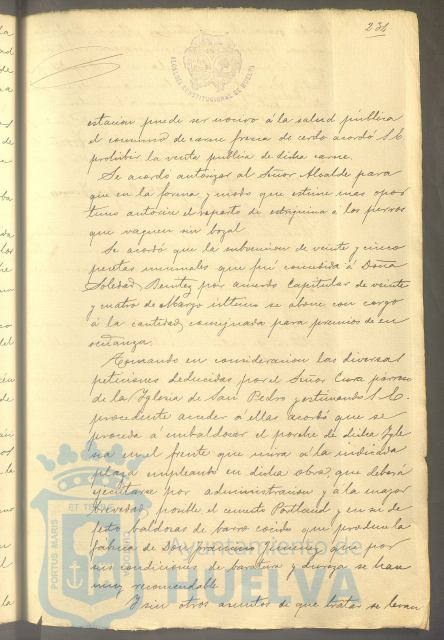 231
ALCALDIA CONSTITUCIONAL DE HUELVA
estacion puede ser nocivo á la salud publica
el consumo de carne fresca de cerdo acordó S. E.
prohibir la venta publica de dicha carne.
Se acordó autorizar al Señor Alcalde para
que en la forma y modo que estime mas opor
tuno autorice el reparto de estriquina á los perros
que vaguen sin bozal
Se acordó que la subvencion de veinte y cinco
pesetas mensuales que fué concedida á Doña
Soledad Benitez por acuerdo Capitular de veinte
y cuatro de Marzo ultimo se abone con cargo
á la cantidad consignada para premios de en
señanza.
Tomando en consideracion las diversas
peticiones deducidas por el Señor Cura párroco
de la Yglesia de San Pedro y estimando S. E.
procedente acceder á ellas acordó que se
proceda á embaldosar el porche de dicha Ygle
sia en el frente que mira á la indicada
plaza empleando en dicha obra, que deberá
ejecutarse por administracion y á la mayor
brevedad posible, el cemento Portland y en su de
fecto baldosas de barro cocido que produce la
fábrica de Don Jimenez que por
sus condiciones de baratura y dureza se hacen
muy recomendable
Y sin otros asuntos de que tratar se levan
PORTUS MARIS ET TERRAE CUSTODIA
Ayuntamiento de
HUELVA